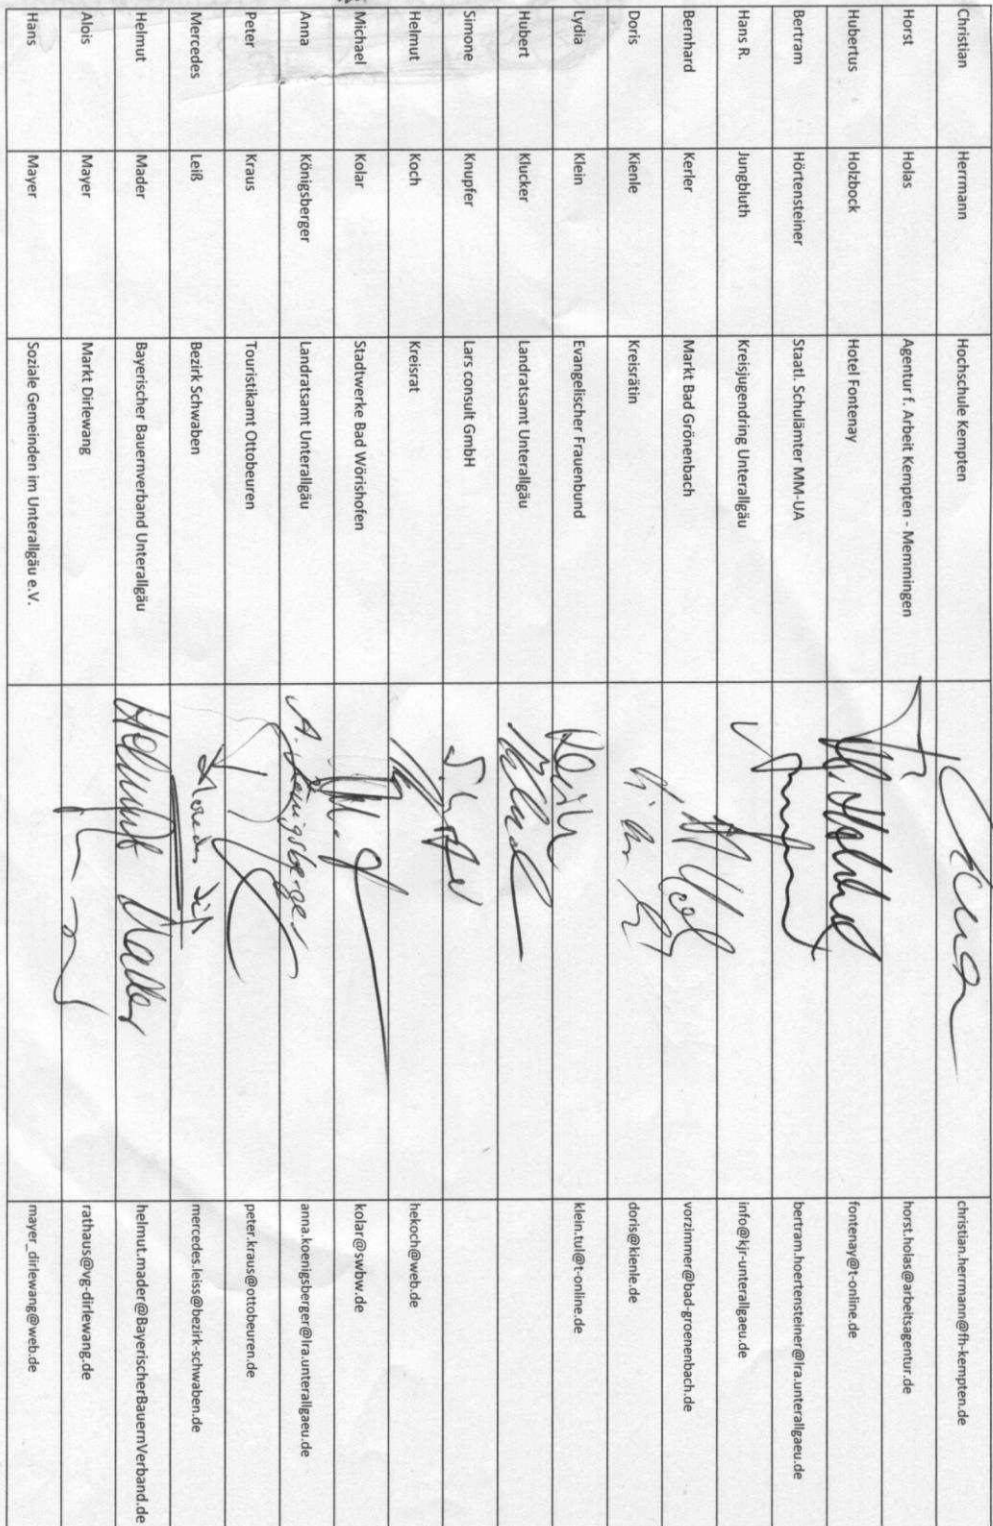 Christian Herrmann Hochschule Kempten christian.herrmann@fh-kempten.de
Horst Holas Agentur f. Arbeit Kempten - Memmingen horst.holas@arbeitsagentur.de
Hubertus Holzbock Hotel Fontenay fontenay@t-online.de
Bertram Hörtensteiner Staatl. Schulämter MM-UA bertram.hoertensteiner@lra.unterallgaeu.de
Hans R. Jungbluth Kreisjugendring Unterallgäu info@kjr-unterallgaeu.de
Bernhard Kerler Markt Bad Grönenbach vorzimmer@bad-groenenbach.de
Doris Kienle Kreisrätin doris@kienle.de
Lydia Klein Evangelischer Frauenbund Klein klein.tul@t-online.de
Hubert Klucker Landratsamt Unterallgäu
Simone Knupfer Lars consult GmbH
Helmut Koch Kreisrat hekoch@web.de
Michael Kolar Stadtwerke Bad Wörishofen kolar@swbw.de
Anna Königsberger Landratsamt Unterallgäu A. Königsberger anna.koenigsberger@lra.unterallgaeu.de
Peter Kraus Touristikamt Ottobeuren peter.kraus@ottobeuren.de
Mercedes Leiß Bezirk Schwaben mercedes.leiss@bezirk-schwaben.de
Helmut Mader Bayerischer Bauernverband Unterallgäu Helmut Mader helmut.mader@BayerischerBauernVerband.de
Alois Mayer Markt Dirlewang rathaus@vg-dirlewang.de
Hans Mayer Soziale Gemeinden im Unterallgäu e.V. mayer_dirlewang@web.de